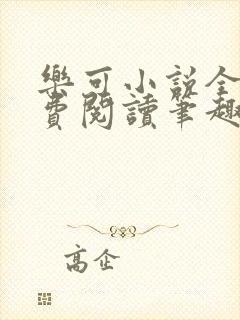 樂可小說全
費閱讀筆趣
高企